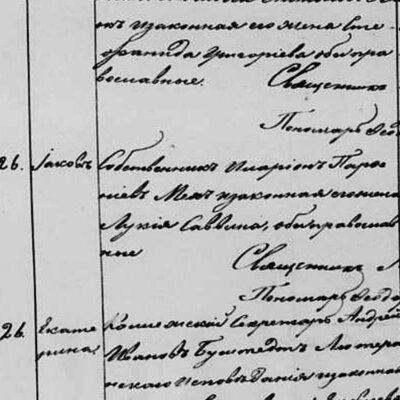 онъ и законная его жена Сте-
фанида Григорієва оба пра
вославные. Священникъ
Пономарь Ѳеод
26. Іаковъ Собственникъ Иларіонъ Паро
ніевъ и законная его жена
Лукія Саввина, оба православ
ные
Священникъ
Пономарь Ѳеодо
26. Екате Секретарь Андрей
рина Ивановъ Лютера
нскаго исповѣданія и законная